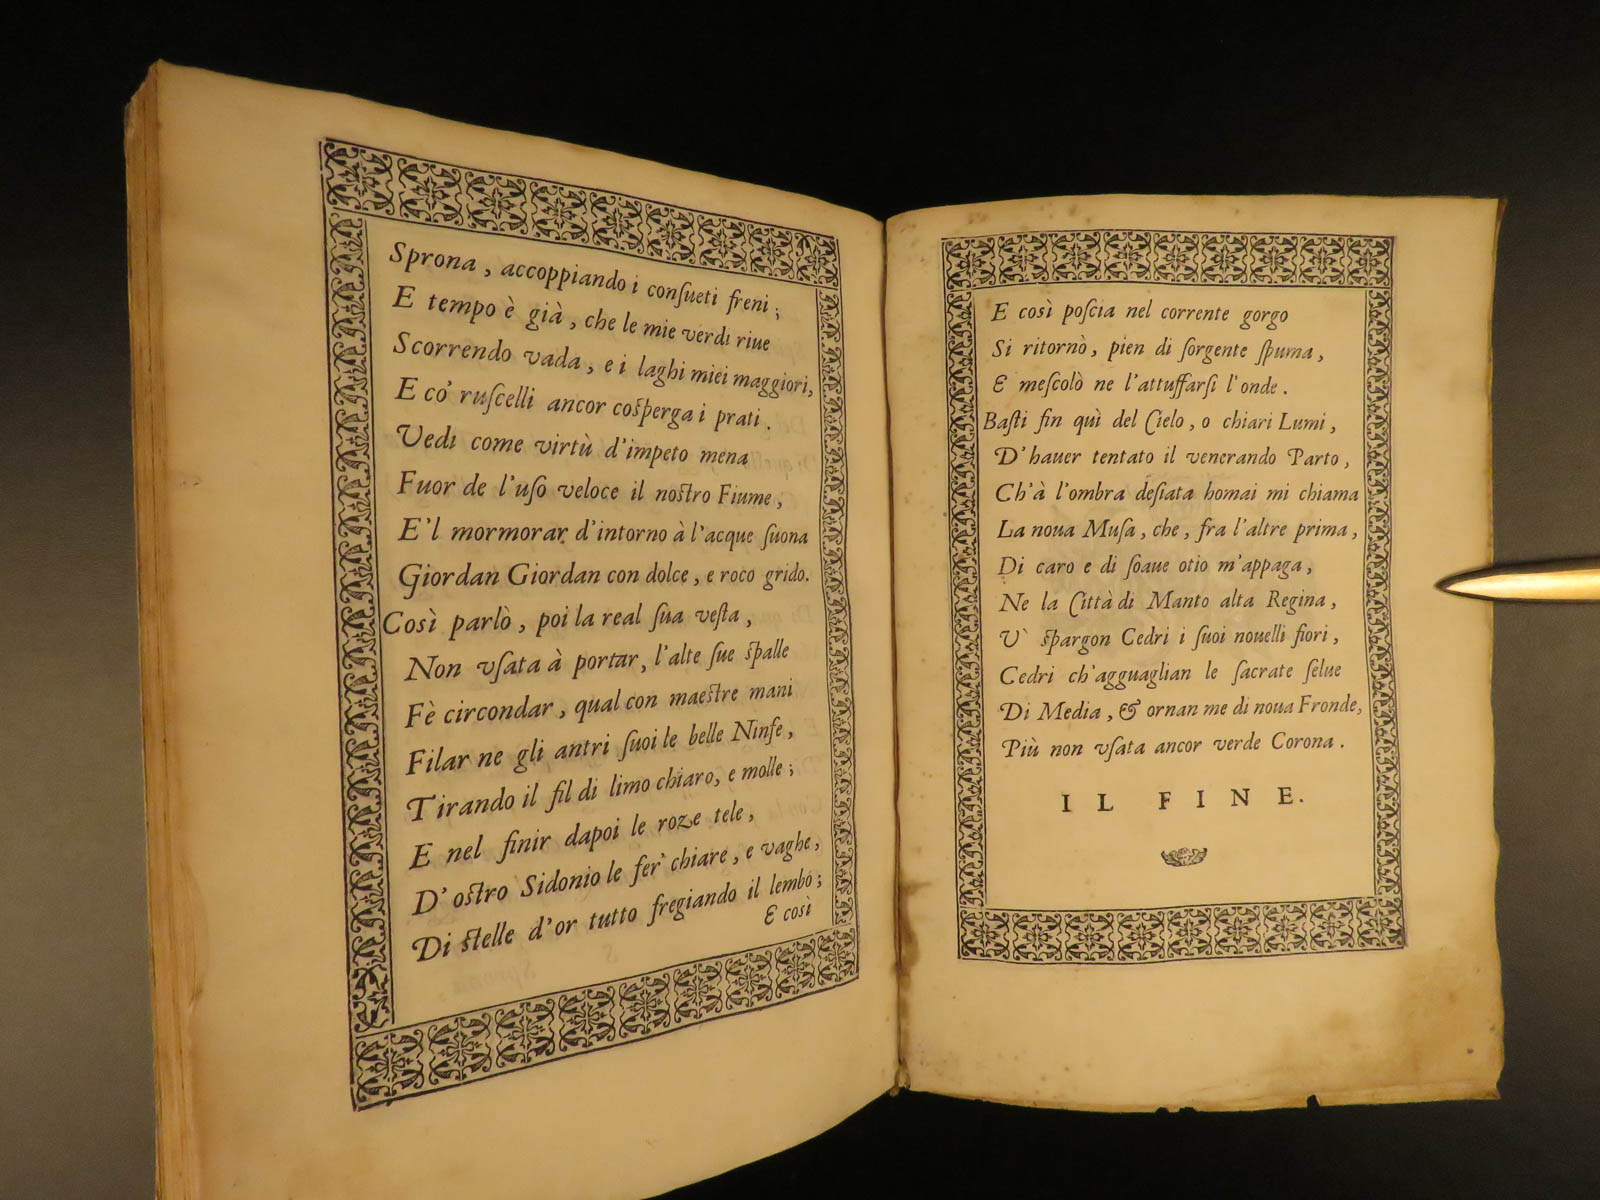 Sprona, accoppiando i conſueti freni;
E tempo è già, che le mie verdi riue
Scorrendo vada, e i laghi miei maggiori,
E co' ruſcelli ancor coſperga i prati.
Vedi come virtù d'impeto mena
Fuor de l'uſo veloce il noſtro Fiume,
E'l mormorar d'intorno à l'acque ſuona
Giordan Giordan con dolce, e roco grido.
Così parlò, poi la real ſua veſta,
Non vſata à portar, l'alte ſue ſpalle
Fè circondar, qual con maeſtre mani
Filar ne gli antri ſuoi le belle Ninfe,
Tirando il fil di limo chiaro, e molle;
E nel finir dapoi le roze tele,
D'oſtro Sidonio le fer' chiare, e vaghe,
Di ſtelle d'or tutto fregiando il lembo;
E così
E così poſcia nel corrente gorgo
Si ritornò, pien di ſorgente ſpuma,
E meſcolò ne l'attuffarſi l'onde.
Baſti fin quì del Cielo, o chiari Lumi,
D'hauer tentato il venerando Parto,
Ch'à l'ombra deſiata homai mi chiama
La noua Muſa, che, fra l'altre prima,
Di caro e di ſoaue otio m'appaga,
Ne la Città di Manto alta Regina,
V` ſpargon Cedri i ſuoi nouelli fiori,
Cedri ch'agguaglian le ſacrate ſelue
Di Media, & ornan me di noua Fronde,
Più non vſata ancor verde Corona.
IL FINE.